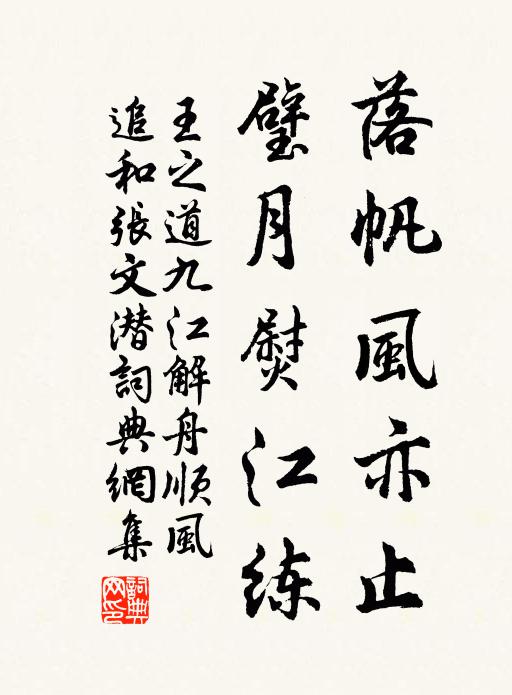 落帆風亦止
璧月熨江练
王之道九江解舟順風
追和張文潛詞典網集
詞典
网印